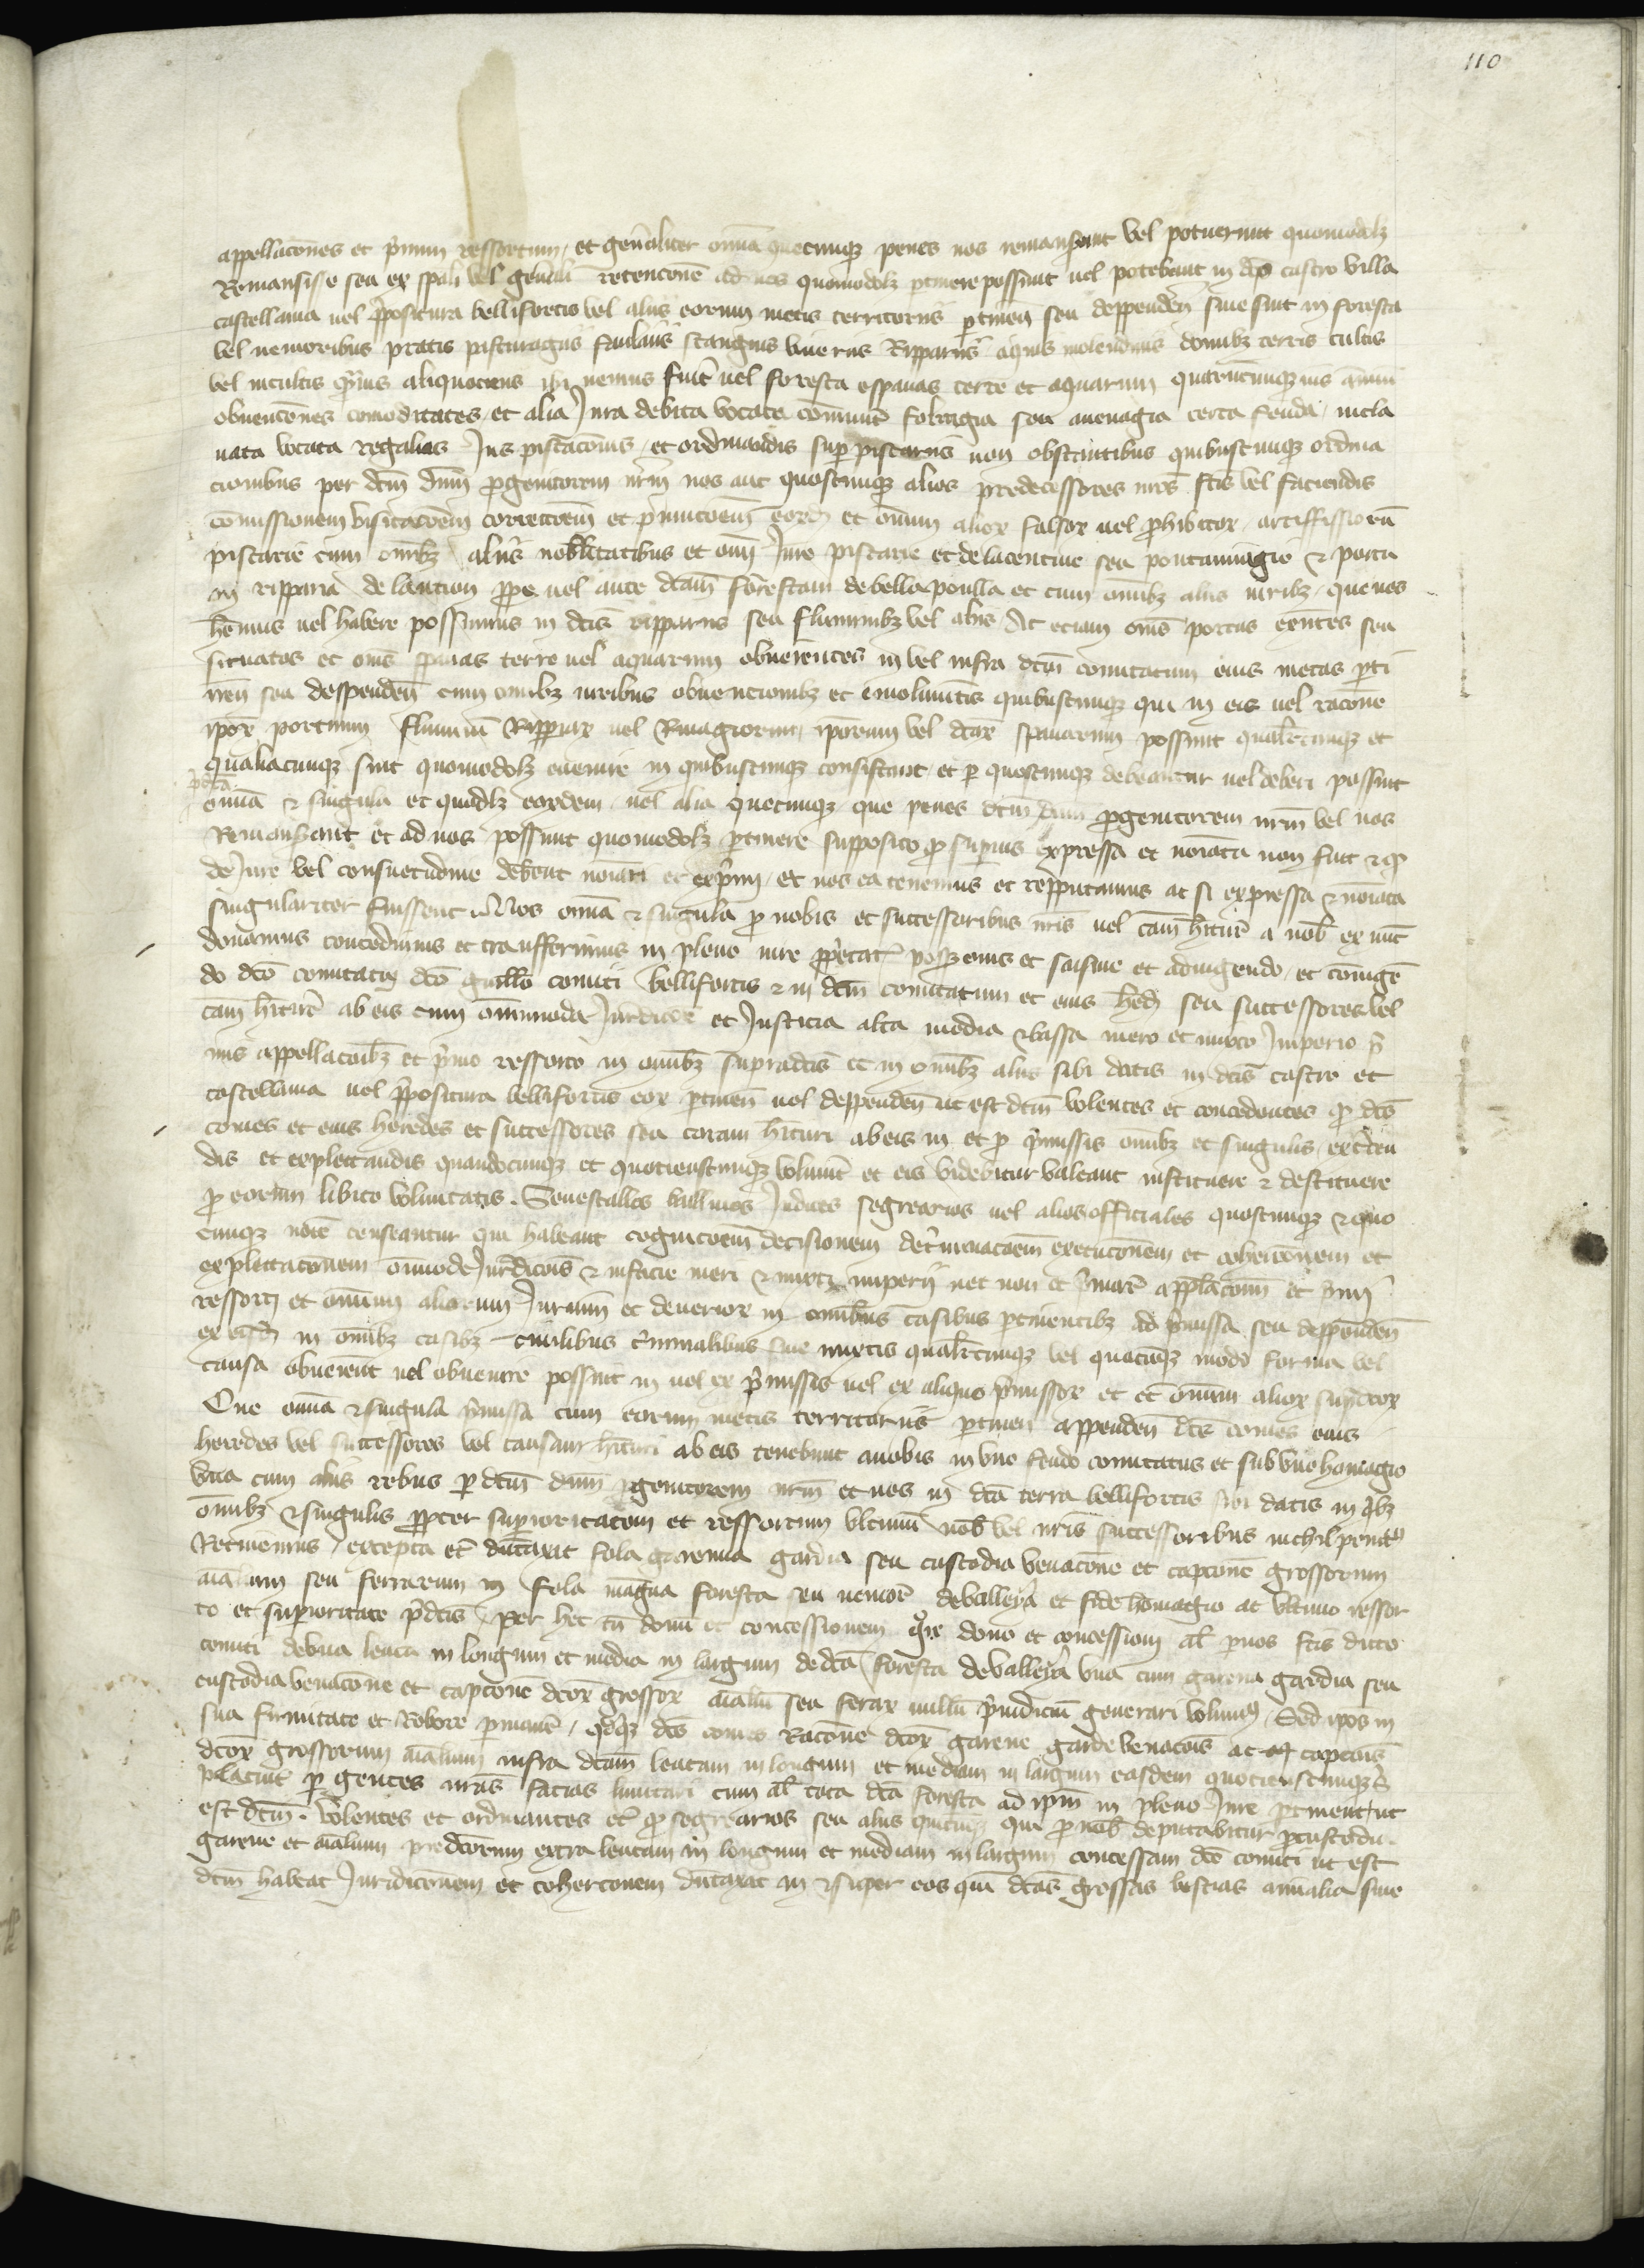 110
appellacones et primum ressortum, et generaliter omnia quecumque penes nos remanserunt vel potuerunt quomodolibet
Remansisse seu ex speciali vel generali retencone ad nos quomodolibet pertinere possunt vel potebant in dicto castro villa
castellania vel prepositura bellifortis vel aliis eorum metis territoriis pertinen seu deppenden sive sint in foresta
vel nemoribus pratis pasturagiis stangnis viveriis Rippariis aquis molendinis domibus terris cultis
vel incultis aliquociens ibi nemus fuit vel foresta espavas terre et aquarum
obvencones comoditates et alia Jura debita vocata seu avenagia certa feuda
vocata regalias Jus piscaconis et ordinandis super piscariis non obstantibus quibuscumque ordina
cionibus per dictum dominum progenitorem nostrum nos aut quoscumque alios predecessores nostros factis vel faciendis
comissionem visitacoem correctoem et punicoem et omnium alior falsor vel prohibitor artiffissiorum
piscarie cum omnibus aliis nobilitatibus et omni Jure piscarie et seu pontanagie et portu
in ripparia prope vel ante dictam forestam de bella poulla et cum omnibus aliis iuribus que nos
habemus vel habere possumus in dictis rippariis seu fluminibus vel aliis Ac eciam omnes portus existentes seu
situatos et omnes spavas terre vel aquarum obvenientes in vel infra dictum comitatum eius metas perti
nen seu despenden cum omnibus iuribus obvencionibus et emolumentis quibuscumque qui in eis vel racone
ipsor portuum fluminum Rippiar vel Rivagiorum ipsorum vel dictar spavarum possunt qualitercumque et
qualiacumque sint quomodolibet evenire in quibuscumque consistant et per quoscumque debeantur vel deberi possint
predicta
omnia et singula et quidlibet eordem vel alia quecumque que penes dictum dominum progenitorem nostrum vel nos
Remanserant et ad nos possunt quomodolibet pertinere supposito quod superius expressa et nominata non sint et quod
de Jure vel consuetudine debeant nominari et exprimi et nos ea tenemus et repputamus ac si expressa et nominata
singulariter fuissent Nos omnia et singula pro nobis et successoribus nostris vel causam habituris a nobis ex nunc
donamus concedimus et transferimus in pleno iure proprietatis possessionis et saisine et adiungendo et coniungen
do dicto comitatu dicto guillelmo comiti bellifortis et in dictum comitatum et eius heredes seu successores vel
causam habituris ab eis cum omnimoda Jurdicione et Justicia alta media et bassa mero et mixto Imperio pri
mis appellaconibus et primo ressorto in omnibus supradictis et in omnibus aliis sibi datis in dictis castro et
castellania vel prepositura bellifortis eor pertinen vel deppenden ut est dictum volentes et concedentes quod dictus
comes et eius heredes et successores seu causam habituri ab eis in et pro premissis omnibus et singulis exercen
dis et explectandis quandocumque et quotienscumque voluerint et eis videbitur valeant instituere et destituere
pro eorum libito voluntatis. Senescallos ballivos Judices segrearios vel alios officiales quoscumque et quo
cumque nomine censeantur qui habeant cognicoem decisionem determinacoem execuconem et cohercionem et
explectaconem omnimode Jurdicois et iusticie meri et mixti imperii nec non et primarum appellaconum et primi
ressorti et omnium aliorum Jurium et deverior in omnibus casibus pertinentibus ad premissa seu deppenden
ex eisdem in omnibus casibus civilibus criminalibus sive mixtis qualitercumque vel quocumque modo forma vel
causa obvenerint vel obvenire possint in vel ex premissis vel ex aliquo premissor et et omnium alior supradictor
Que omnia et singula premissa cum eorum metis territoriis pertinen appenden dictus comes eius
heredes vel successores vel causam habituri ab eis tenebunt a nobis in uno feudo comitatus et sub uno homagio
una cum aliis rebus per dictum dominum progenitorem nostrum et nos in dicta terra bellifortis sibi datis in quibus
omnibus et singulis propter superioritatem et ressortum ultimum nobis vel nostris successoribus nichil penitus
Retinemus, excepta et dumtaxat sola garenna gardia seu custodia venacone et capcone grossorum
animalium seu ferrarum in sola magna foresta seu nemore de valleya et fide homagio ac ultimo ressor
to et superioritate predictis Per hec tamen donum et concessionem dono et concessioni alias per nos factis dicto
comiti de una leuca in longum et media in largum de dicta foresta de valleya una cum garena gardia seu
custodia venacone et capcone dictor grossor animalium seu ferar nullum preiudicium generari volumus, Sed ipsos in
sua firmitate et Robore permanere, quodque dictus comes Racone dictor garene garde venacois ac capcois
dictor grossorum animalium infra dictam leucam in longum et mediam in largum easdem quotienscumque sibi
placuerit per gentes nostras facias limitari cum alias tota dicta foresta ad ipsum in pleno Jure pertineat ut
est dictum. Volentes et ordinantes et quod segrearios seu alius quicumque qui pro nobis deputabitur pro custodia
garene et animalium predictorum extra leucam in longum et mediam in largum concessam dicto comiti ut est
dictum habeat Juridiconem et coherconem dumtaxat in et super eos qui dictas grossas bestias animalia sive